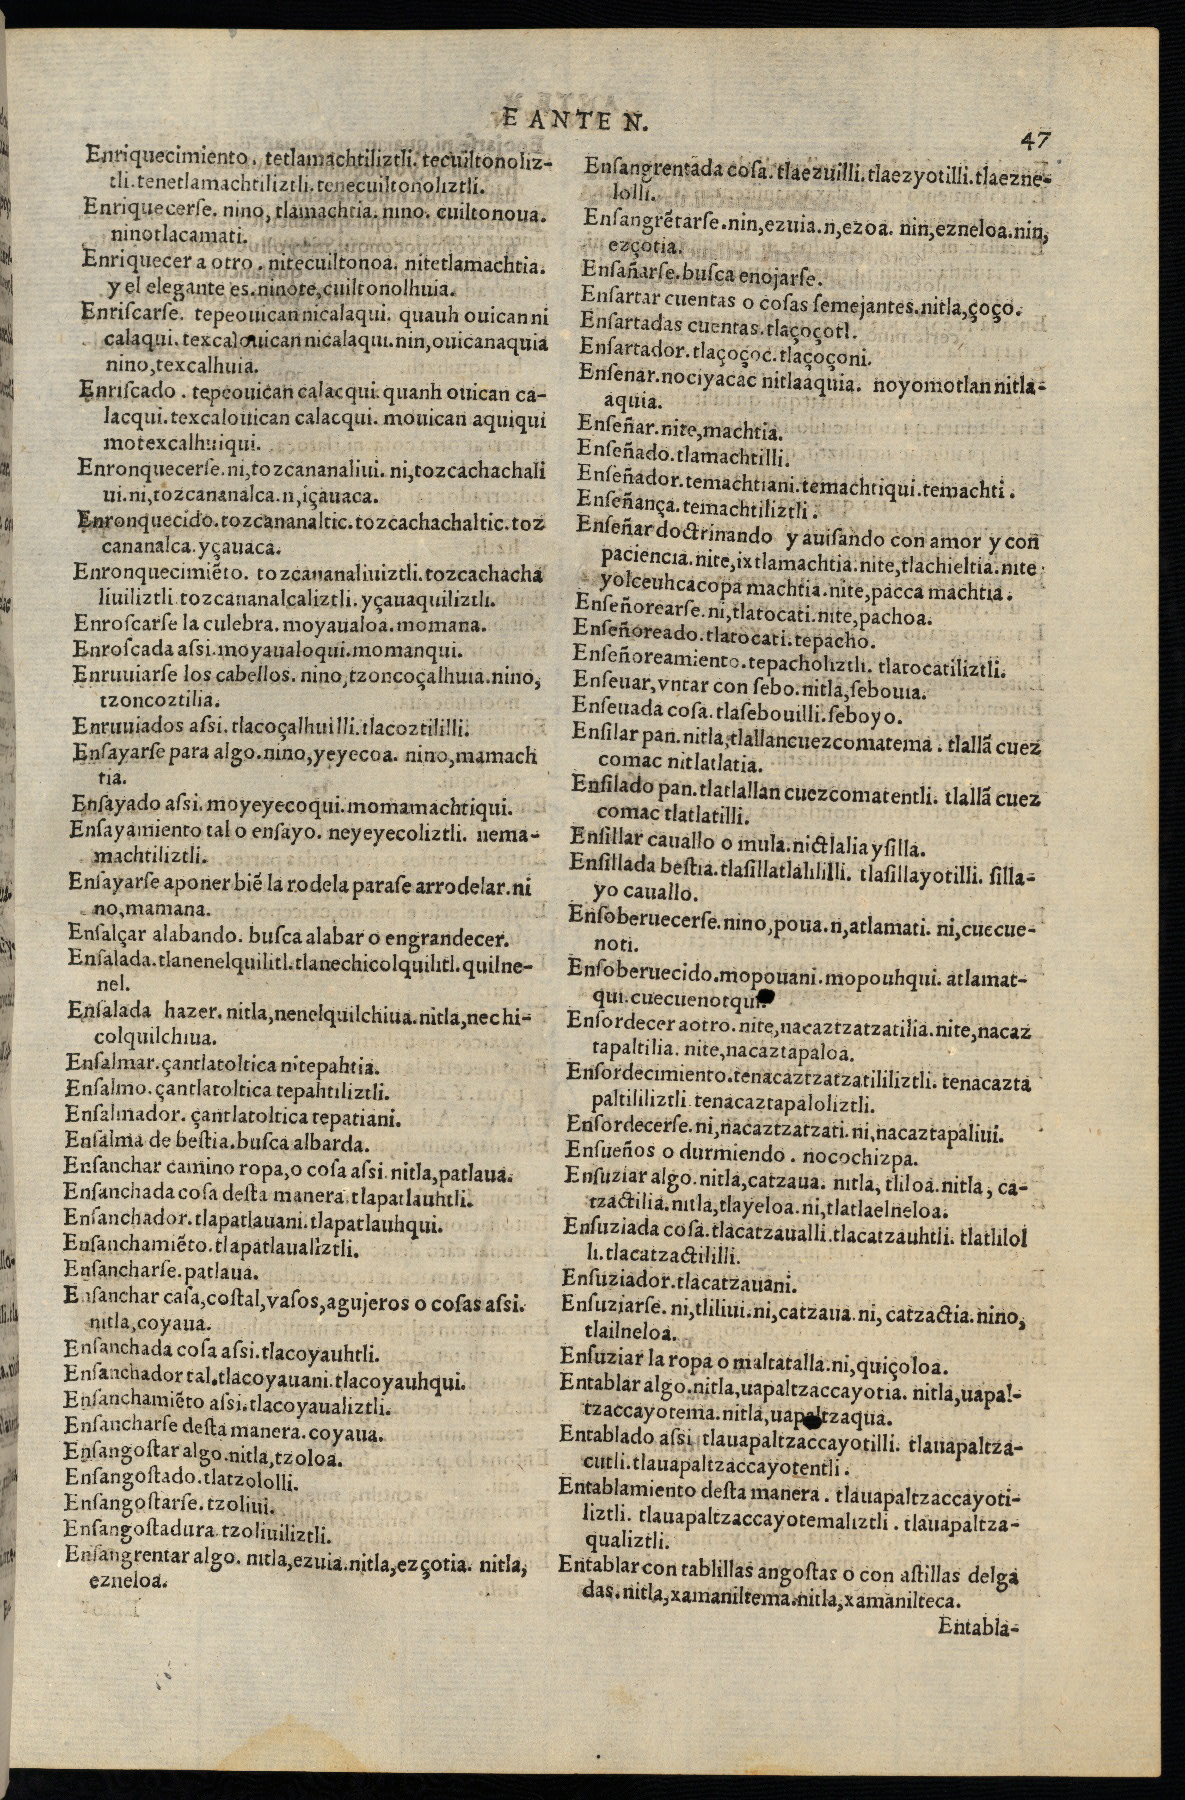 E ANTE N.
47
Enriquecimiento. tetlamachtiliztli. tecuiltonoliz-
tli. tenetlamachtiliztli. tenecuiltonoliztli.
Enriquecerſe. nino, tlamachtia. nino. cuiltonoua.
ninotlacamati.
Enriquecer a otro. nitecuiltonoa. nitetlamachtia.
y el elegante es. ninote, cuiltonolhuia.
Enriſcarſe. tepeouican nicalaqui. quauh ouican ni
calaqui. texcalouican nicalaqui. nin, ouicanaquia
nino, texcalhuia.
Enriſcado. tepeouican calacqui. quanh ouican ca-
lacqui. texcalouican calacqui. mouican aquiqui
motexcalhuiqui.
Enronquecerſe. ni, tozcananaliui. ni, tozcachachali
ui. ni, tozcananalca. n, içauaca.
Enronquecido. tozcananaltic. tozcachachaltic. toz
cananalca. yçauaca.
Enronquecimiẽto. tozcananaliuiztli. tozcachacha
liuiliztli. tozcananalcaliztli. yçauaquiliztli.
Enroſcarſe la culebra. moyaualoa. momana.
Enroſcada aſsi. moyaualoqui. momanqui.
Enruuiarſe los cabellos. nino, tzoncoçalhuia. nino,
tzoncoztilia.
Enruuiados aſsi. tlacoçalhuilli. tlacoztililli.
Enſayarſe para algo. nino, yeyecoa. nino, mamach
tia.
Enſayado aſsi. moyeyecoqui. momamachtiqui.
Enſayamiento tal o enſayo. neyeyecoliztli. nema-
machtiliztli.
Enſayarſe aponer biẽ la rodela paraſe arrodelar. ni
no, mamana.
Enſalçar alabando. buſca alabar o engrandecer.
Enſalada. tlanenelquilitl. tlanechicolquilitl. quilne-
nel.
Enſalada hazer. nitla, nenelquilchiua. nitla, nechi-
colquilchiua.
Enſalmar. çantlatoltica nitepahtia.
Enſalmo. çantlatoltica tepahtiliztli.
Enſalmador. çantlatoltica tepatiani.
Enſalma de beſtia. buſca albarda.
Enſanchar camino ropa, o coſa aſsi. nitla, patlaua.
Enſanchada coſa deſta manera. tlapatlauhtli.
Enſanchador. tlapatlauani. tlapatlauhqui.
Enſanchamiẽto. tlapatlaualiztli.
Enſancharſe. patlaua.
Enſanchar caſa, coſtal, vaſos, agujeros o coſas aſsi.
nitla, coyaua.
Enſanchada coſa aſsi. tlacoyauhtli.
Enſanchador tal. tlacoyauani. tlacoyauhqui.
Enſanchamiẽto aſsi. tlacoyaualiztli.
Enſancharſe deſta manera. coyaua.
Enſangoſtar algo. nitla, tzoloa.
Enſangoſtado. tlatzololli.
Enſangoſtarſe. tzoliui.
Enſangoſtadura. tzoliuiliztli.
Enſangrentar algo. nitla, ezuia. nitla, ezçotia. nitla,
ezneloa.
Enſangrentada coſa. tlaezuilli. tlaezyotilli. tlaezne-
lolli.
Enſangrẽtarſe. nin, ezuia. n, ezoa. nin, ezneloa. nin,
ezçotia.
Enſañarſe. buſca enojarſe.
Enſartar cuentas o coſas ſemejantes. nitla, çoço.
Enſartadas cuentas. tlaçoçotl.
Enſartador. tlaçoçoc. tlaçoçoni.
Enſenar. nociyacac nitlaaquia. noyomotlan nitla-
aquia.
Enſeñar. nite, machtia.
Enſeñado. tlamachtilli.
Enſeñador. temachtiani. temachtiqui. temachti.
Enſeñança. temachtiliztli.
Enſeñar doctrinando y auiſando con amor y con
paciencia. nite, ixtlamachtia. nite, tlachieltia. nite
yolceuhcacopa machtia. nite, pacca machtia.
Enſeñorearſe. ni, tlatocati. nite, pachoa.
Enſeñoreado. tlatocati. tepacho.
Enſeñoreamiento. tepacholiztli. tlatocatiliztli.
Enſeuar, vntar con ſebo. nitla, ſebouia.
Enſeuada coſa. tlaſebouilli. ſeboyo.
Enſilar pan. nitla, tlallancuezcomatema. tlallã cuez
comac nitlatlatia.
Enſilado pan. tlatlallan cuezcomatentli. tlallã cuez
comac tlatlatilli.
Enſillar cauallo o mula. nictlalia yſilla.
Enſillada beſtia. tlaſillatlalililli. tlaſillayotilli. ſilla-
yo cauallo.
Enſoberuecerſe. nino, poua. n, atlamati. ni, cuecue-
noti.
Enſoberuecido. mopouani. mopouhqui. atlamat-
qui. cuecuenotqui.
Enſordecer aotro. nite, nacaztzatzatilia. nite, nacaz
tapaltilia. nite, nacaztapaloa.
Enſordecimiento. tenacaztzatzatililiztli. tenacazta
paltililiztli. tenacaztapaloliztli.
Enſordecerſe. ni, nacaztzatzati. ni, nacaztapaliui.
Enſueños o durmiendo. nocochizpa.
Enſuziar algo. nitla, catzaua. nitla, tliloa. nitla, ca-
tzactilia. nitla, tlayeloa. ni, tlatlaelneloa.
Enſuziada coſa. tlacatzaualli. tlacatzauhtli. tlatlilol
li. tlacatzactililli.
Enſuziador. tlacatzauani.
Enſuziarſe. ni, tliliui. ni, catzaua. ni, catzactia. nino,
tlailneloa.
Enſuziar la ropa o maltatalla. ni, quiçoloa.
Entablar algo. nitla, uapaltzaccayotia. nitla, uapal-
tzaccayotema. nitla, uapaltzaqua.
Entablado aſsi tlauapaltzaccayotilli. tlauapaltza-
cutli. tlauapaltzaccayotentli.
Entablamiento deſta manera. tlauapaltzaccayoti-
liztli. tlauapaltzaccayotemaliztli. tlauapaltza-
qualiztli.
Entablar con tablillas angoſtas o con aſtillas delga
das. nitla, xamaniltema. nitla, xamanilteca.
Entabla-